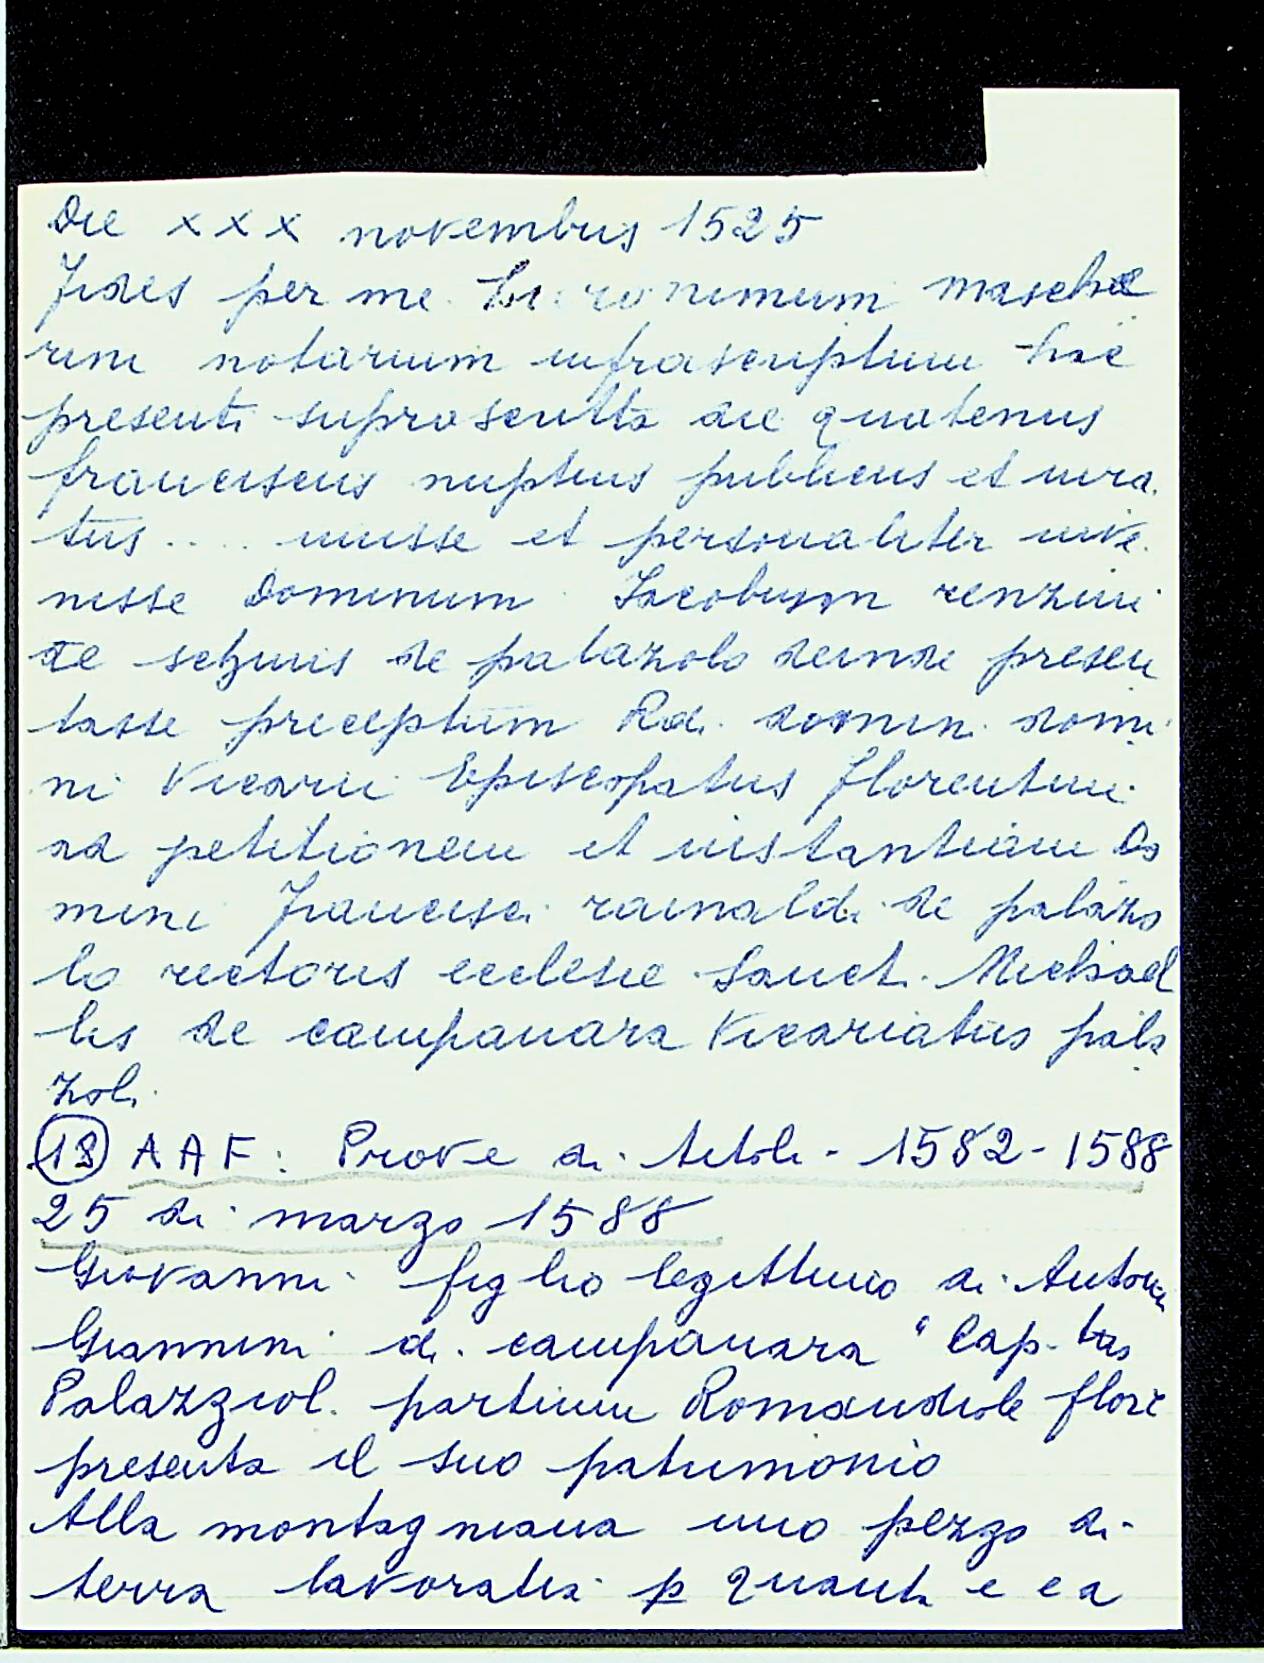 Die xxx novembris 1525
Fides per me Hieronimum masche
rini notarium infrascriptum hic
presenti suprascritta die quatenus
franciscus nuptius publicus et iura
tus .... iuisse et personaliter inve
nisse Dominum Jacobum renzini
de selzinis de palazolo deinde presen
tasse preceptum Rdi domin. domi
ni Vicarii Episcopatus florentini
ad petitionem et instantiam Do
mini Francisci rainaldi de palazo
lo rectoris ecclesie Sanct. Michael
lis de campanara Vicariatus pala
zoli
(18) AAF: Prove di titoli - 1582-1588
25 di marzo 1588
Giovanni figlio legittimo di Antoni
Giannini di campanara "Cap-tus
Palazziol. partium Romandiole flore
presenta il suo patrimonio
Alla montagniana uno pezzo di
terra lavoratia p quanti e ea